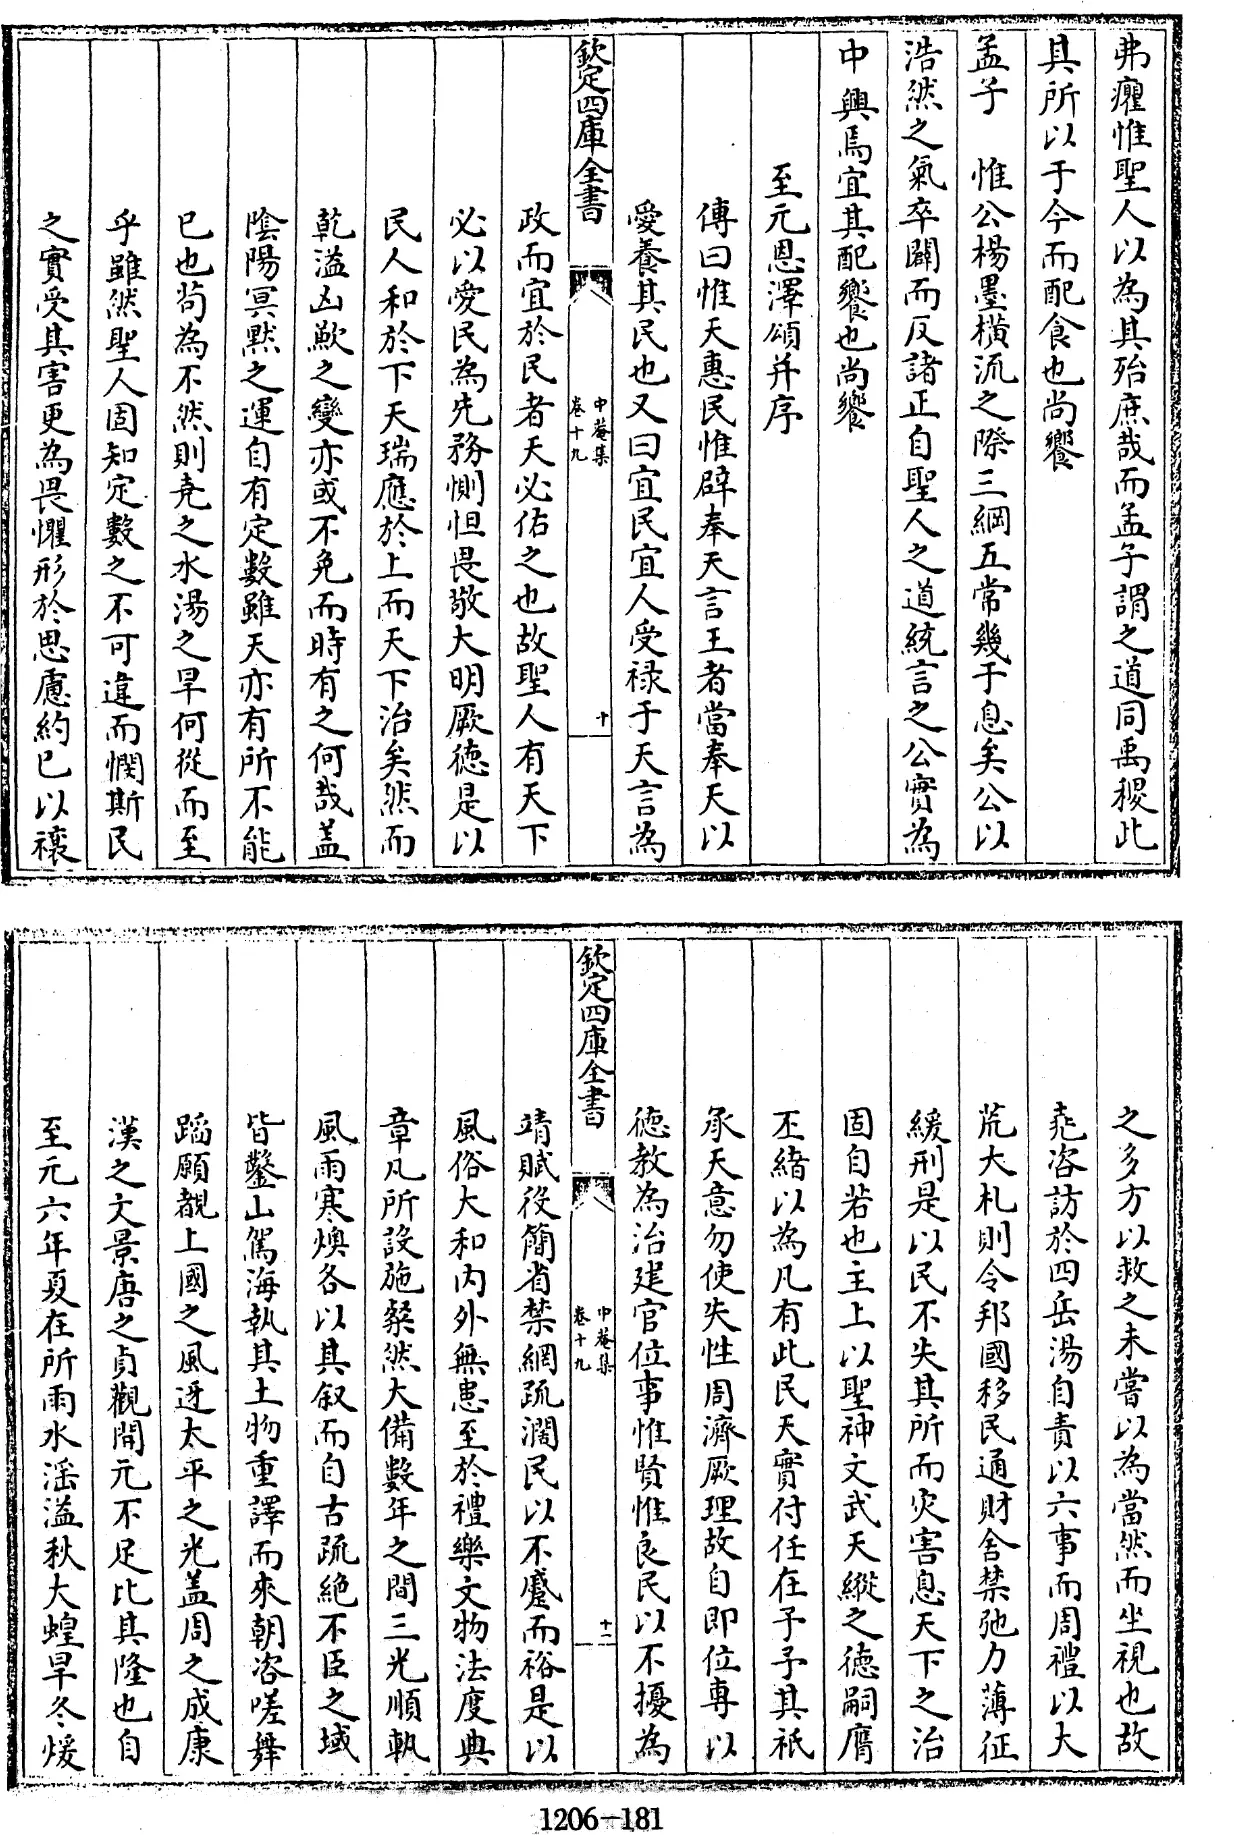 弗癯惟聖人以為其殆庶哉而孟子謂之道同禹稷此
其所以于今而配食也尚饗
孟子　惟公楊墨横流之際三綱五常幾于息矣公以
浩然之氣卒闢而反諸正自聖人之道統言之公實為
中興焉宜其配饗也尚饗
至元恩澤頌并序
傳曰惟天惠民惟辟奉天言王者當奉天以
愛養其民也又曰宜民宜人受禄于天言為
欽定四庫全書
中菴集
卷十九
十
政而宜於民者天必佑之也故聖人有天下
必以愛民為先務惻怛畏敬大明厥德是以
民人和於下天瑞應於上而天下治矣然而
乾溢凶歉之變亦或不免而時有之何哉盖
陰陽冥黙之運自有定數雖天亦有所不能
已也茍為不然則堯之水湯之旱何從而至
乎雖然聖人固知定數之不可違而憫斯民
之實受其害更為畏懼形於思慮約已以禳
之多方以救之未嘗以為當然而坐視也故
堯咨訪於四岳湯自責以六事而周禮以大
荒大札則令邦國移民通財舍禁弛力薄征
緩刑是以民不失其所而灾害息天下之治
固自若也主上以聖神文武天縱之德嗣膺
丕緒以為凡有此民天實付任在予予其祇
承天意勿使失性周濟厥理故自即位專以
德教為治建官位事惟賢惟良民以不擾為
欽定四庫全書
中菴集
卷十九
十一
靖賦役簡省禁網疏濶民以不蹙而裕是以
風俗大和内外無患至於禮樂文物法度典
章凡所設施粲然大備數年之間三光順軌
風雨寒燠各以其叙而自古疏絶不臣之域
皆鑿山駕海執其土物重譯而來朝咨嗟舞
蹈願覩上國之風迓太平之光盖周之成康
漢之文景唐之貞觀開元不足比其隆也自
至元六年夏在所雨水滛溢秋大蝗旱冬煖
1206-181